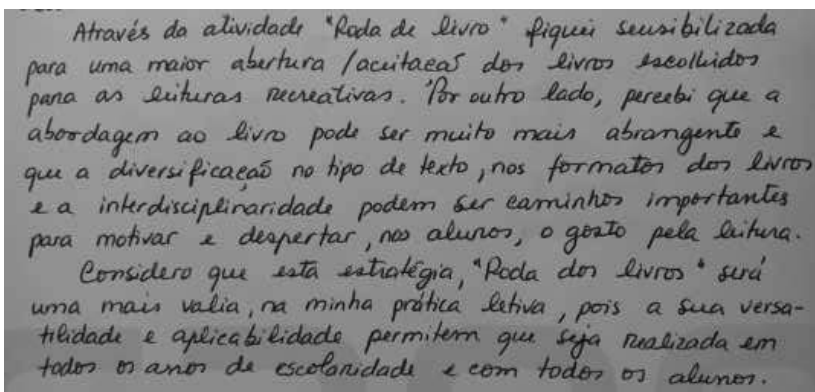 Através da atividade "Roda de livro" fiquei sensibilizada
para uma maior abertura / aceitação dos livros escolhidos
para as leituras recreativas. Por outro lado, percebi que a
abordagem ao livro pode ser muito mais abrangente e
que a diversificação no tipo de texto, nos formatos dos livros
e a interdisciplinaridade podem ser caminhos importantes
para motivar e despertar, nos alunos, o gosto pela leitura.
Considero que esta estratégia, "Roda dos livros" será
uma mais valia, na minha prática letiva, pois a sua versa-
tilidade e aplicabilidade permitem que seja realizada em
todos os anos de escolaridade e com todos os alunos.